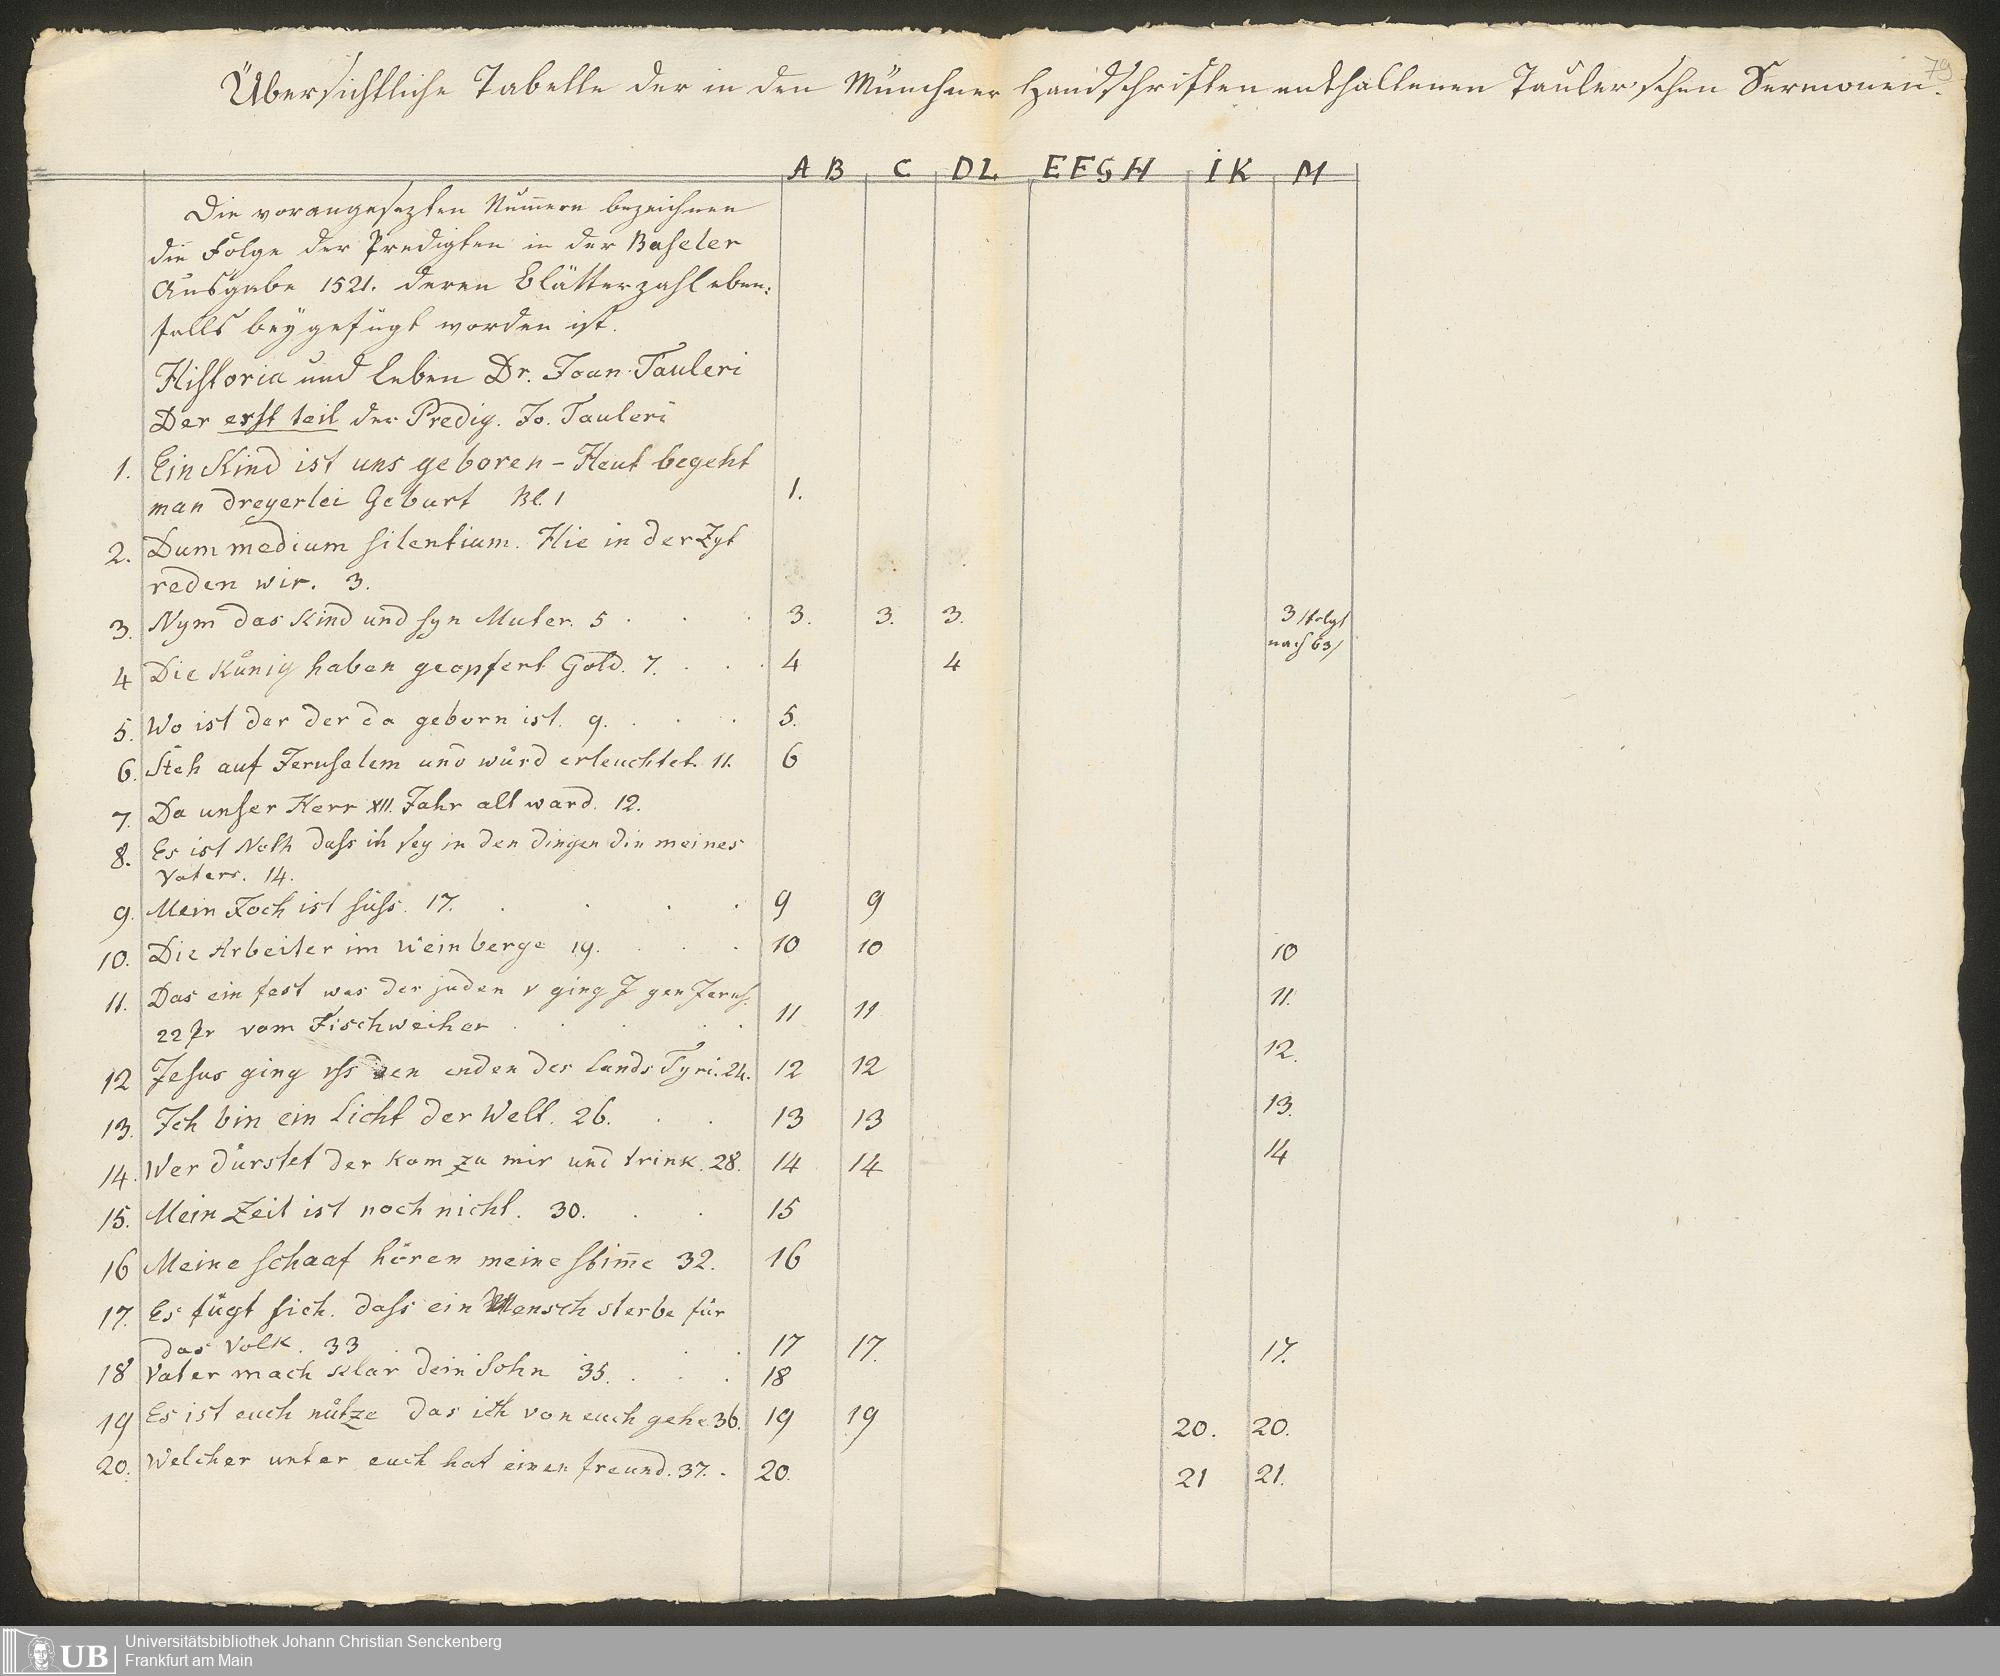 79
Übersichtliche Tabelle der in den Münchner Handschriften enthaltenen Tauler'schen Sermonen.
A B C DL EFGH İK M
Die vorangesezten Num̅ern bezeichnen
die Folge der Predigten in der Baseler
Ausgabe 1521. deren Blätterzahl eben:
falls beygefügt worden ist.
Historia und leben Dr. Joan Tauleri
Der erst teil der Predig. Jo. Tauleri
1. Ein Kind ist uns geboren – Heut begeht
man dreyerlei Geburt Bl. 1 1.
2. Dum medium silentium. Hie in der Zyt
reden wir. 3.
3. Nym das Kind und syn Muter. 5 . . . 3. 3. 3. 3 /folgt
nach 63/
4 Die Kůnig haben geopfert Gold. 7. . . . 4 4
5. Wo ist der der da geborn ist. 9. . . . 5.
6. Steh auf Jerusalem und wůrd erleuchtet. 11. 6
7. Da unser Herr XII. Jahr alt ward. 12.
8. Es ist Noth dass ih sey in den dingen din meines
Vaters. 14.
9. Mein Joch ist süss. 17. . . . . 9 9
10. Die Arbeiter im Weinberge 19. . . . 10 10 10
11. Das ein fest was der juden v ging J gen Jerus.
22 Pr vom Fischweiher . . . . . 11 11 11.
12 Jesus ging uss den enden des lands Tyri. 24. 12 12 12.
13. Ich bin ein Licht der Welt. 26. . . 13 13 13.
14. Wer dürstet der kom zu mir und trink. 28. 14 14 14
15. Mein Zeit ist noch nicht. 30. . . 15
16 Meine schaaf hören meine stim̅e 32. 16
17. Es fügt sich. dass ein Mensch sterbe für
das Volk. 33 . . . 17 17. 17.
18 Vater mach klar dein Sohn 35. . . . 18
19 Es ist euch nůtze das ich von euch gehe 36. 19 19 20. 20.
20. Welcher unter euch hat einen freund. 37. . 20. 21 21.
UB
Universitätsbibliothek Johann Christian Senckenberg
Frankfurt am Main